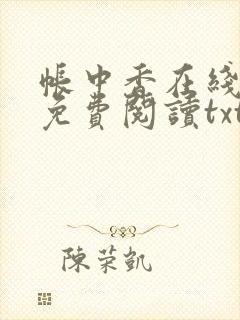 帳中香在綫
免費閱讀txt
陳荣凱